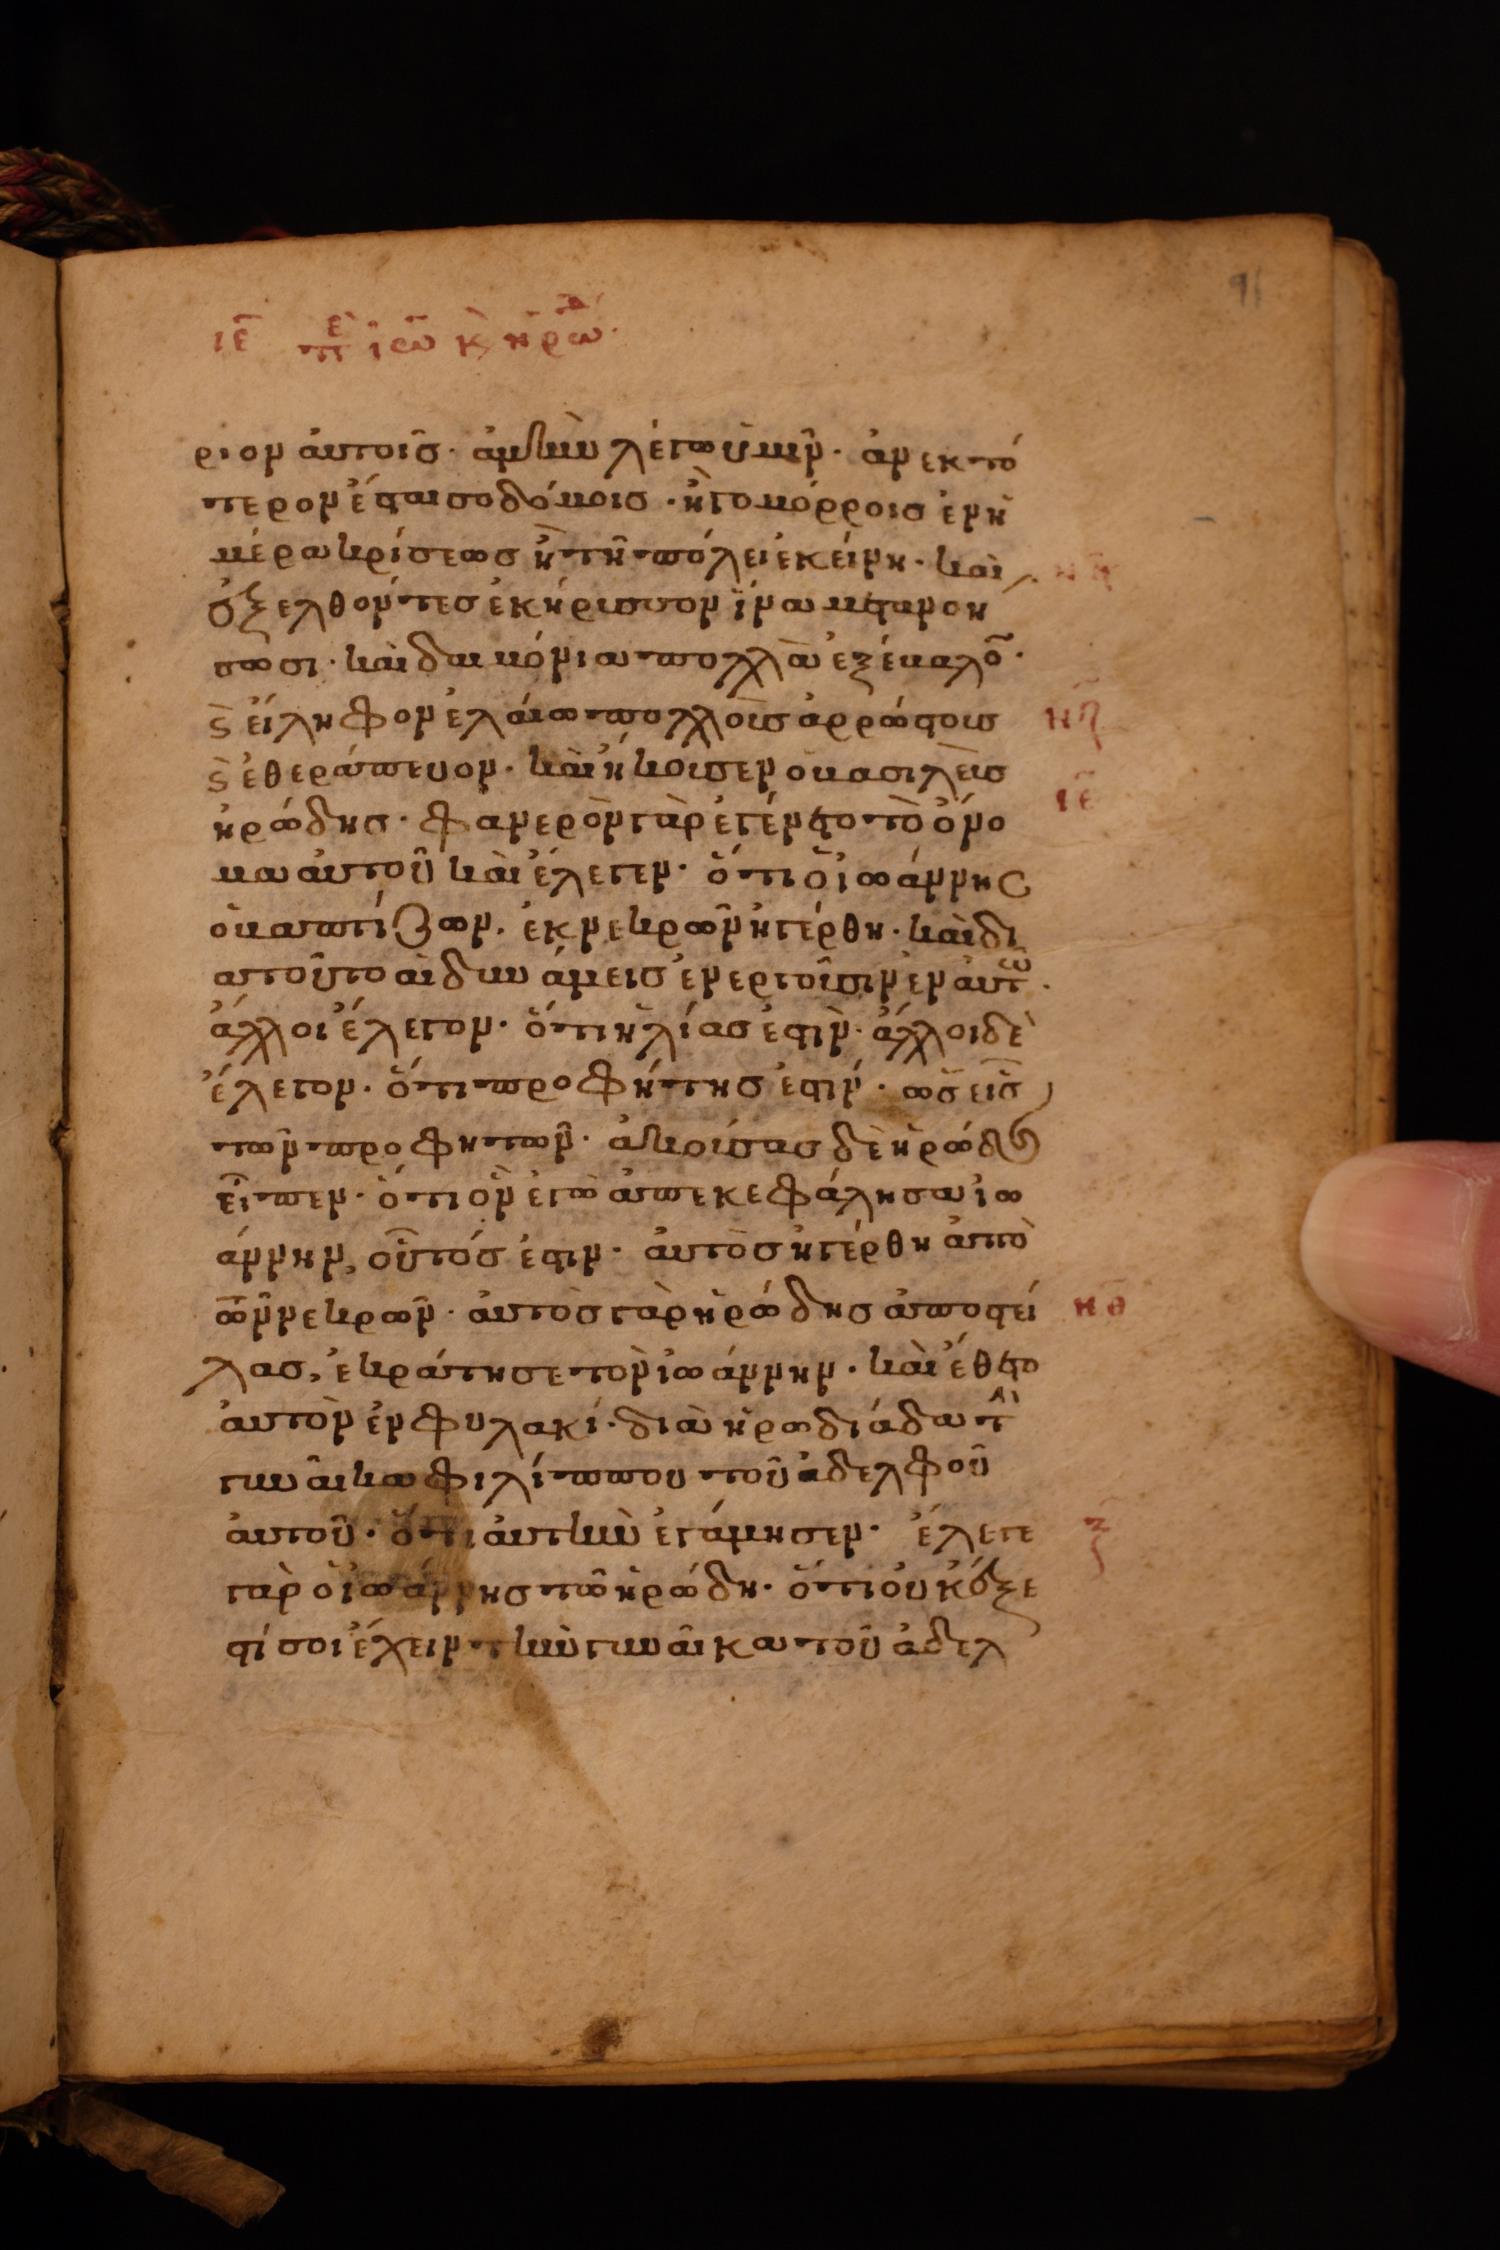 91
ιε πε ιω κ ηρω
ριον αὐτοῖς· ἀμὴν λέγω ὑμῖν· ἀνεκτό
τερον ἔσται σοδόμοις· ἢ γομόρροις ἐν ἡ
μέρα κρίσεως ἢ τῇ πόλει ἐκείνη· καὶ
ἐξελθόντες ἐκήρυσσον ἵνα μετανοή
σωσι· καὶ δαιμόνια πολλὰ ἐξέβαλο̅·
ϛ̀ ἤλειφον ἐλαίω πολλοὺς ἀρρώστους κη
ϛ̀ ἐθεράπευον· καὶ ἤκουσεν ὁ βασιλεὺς
ιε
ἡρώδης· φανερὸν γὰρ ἐγένετο τὸ ὄνο
μα αὐτοῦ καὶ ἔλεγεν· ὅτι ὁ ἰωάννης
ὁ βαπτίζων, ἐκ νεκρῶν ἠγέρθη· καὶ δι
α τοῦτο αἱ δυνάμεις ἐνεργοῦσιν ἐν αὐτῶ·
ἄλλοι ἔλεγον· ὅτι ἠλίας ἐστὶν· ἄλλοι δὲ
ἔλεγον· ὅτι προφήτης ἐστίν· ὡς εἷς
τῶν προφητῶν· ἀκούσας δὲ ἡρώδης
εἶπεν· ὅτι ὃν ἐγὼ ἀπεκεφάλησα ἰω
άννην, οὗτός ἐστιν· αὐτὸς ἠγέρθη ἀπὸ
τῶν νεκρῶν· αὐτὸς γὰρ ἡρώδης ἀποστεί κθ
λας, ἐκράτησε τὸν ἰωάννην· καὶ ἔθετο
αὐτὸν ἐν φυλακί· διὰ ἡρωδιάδα τὴν
γυναῖκα φιλίππου τοῦ ἀδελφοῦ
αὐτοῦ· ὅτι αὐτὴν ἐγάμησεν· ἔλεγε ξ
γὰρ ὁ ἰωάννης τῶ ἡρώδη· ὅτι οὐκ ἔξε
στί σοι ἔχειν τὴν γυναῖκα τοῦ ἀδελ